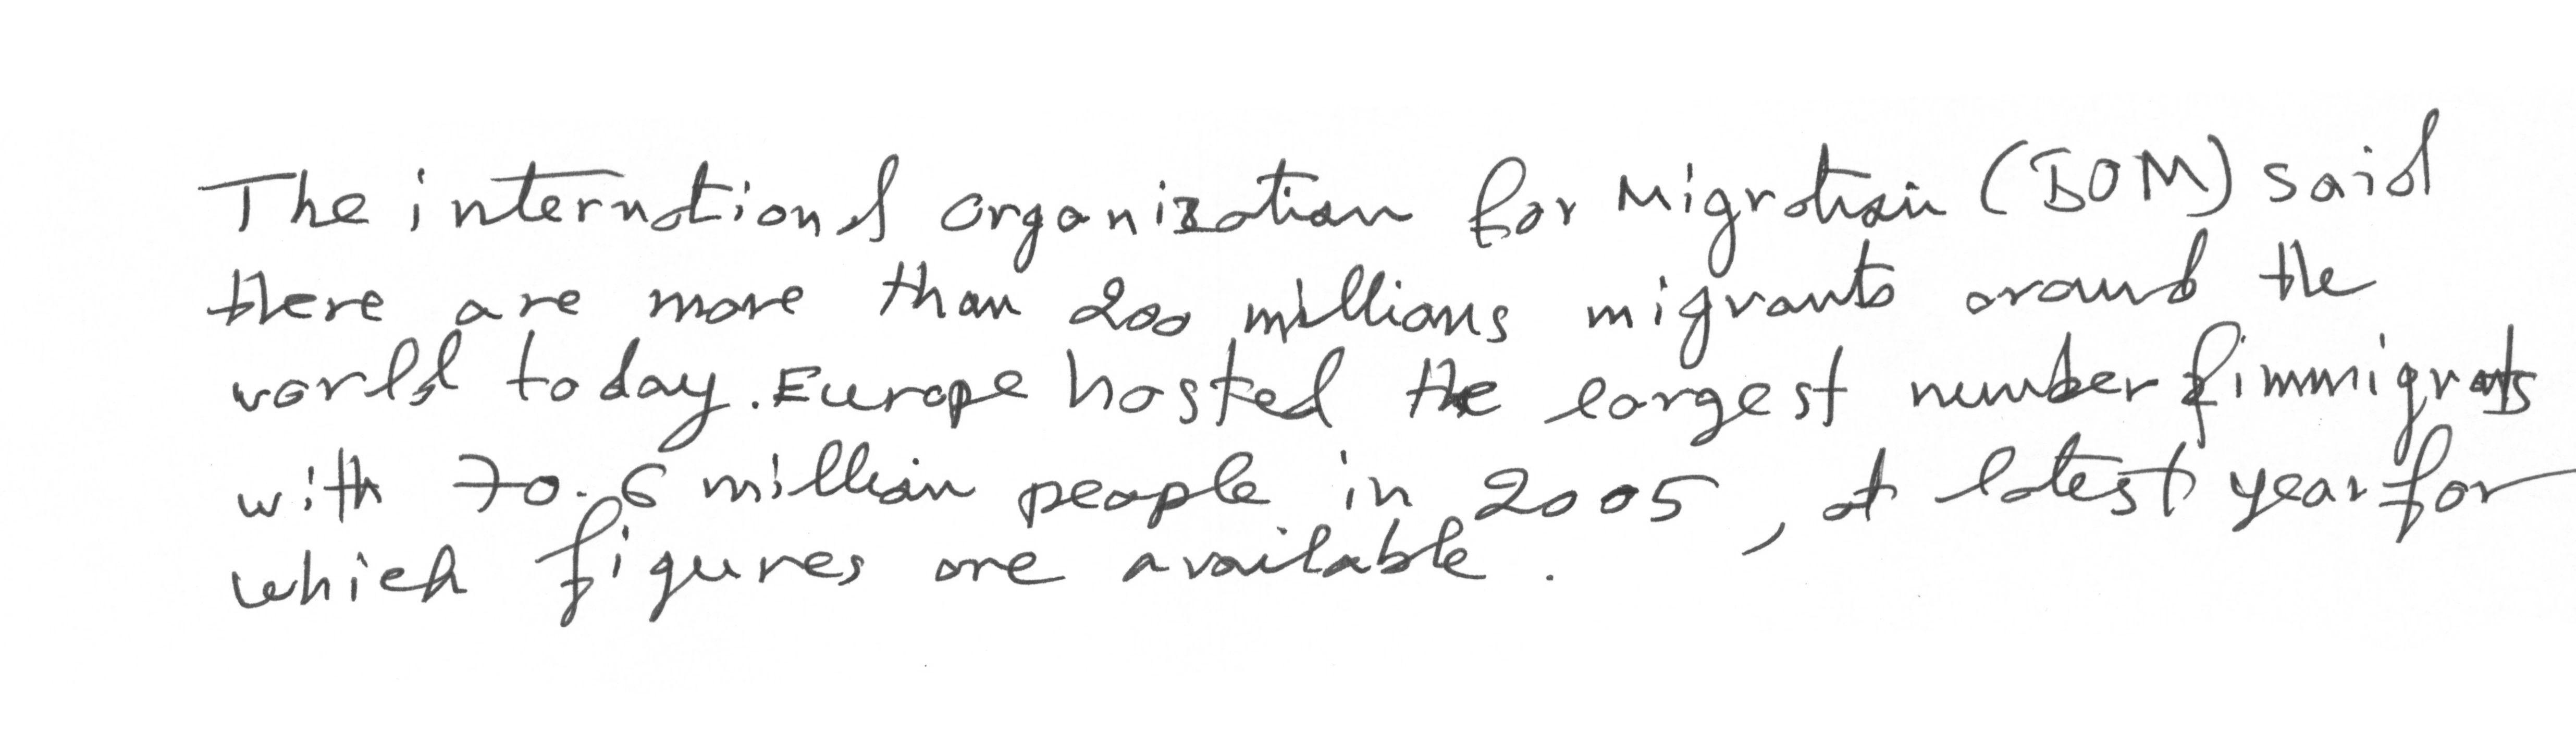 The international organization for Migration (IOM) said
there are more than 200 millions migrants around the
world today. Europe hosted the largest number of immigrants
with 70.6 million people in 2005, at latest year for
which figures are available.